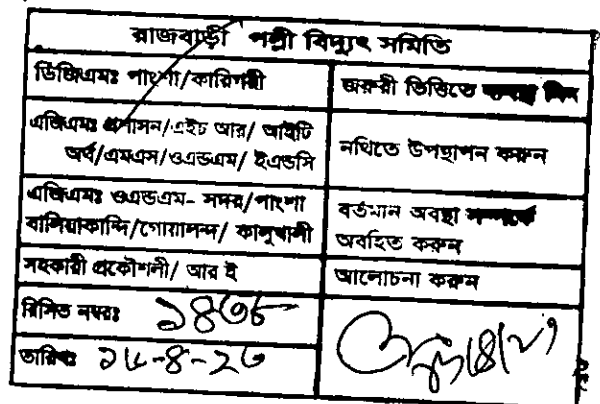 রাজবাড়ী পল্লী বিদ্যুৎ সমিতি
ডিজিএমঃ পাংশা/কারিগরী
জরুরী ভিত্তিতে ব্যবস্থা নিন
এজিএমঃ প্রশাসন/এইচ আর/ আইটি
অর্থ/এমএস/ওএন্ডএম/ ইএন্ডসি
নথিতে উপস্থাপন করুন
এজিএমঃ ওএন্ডএম- সদর/পাংশা
বালিয়াকান্দি/গোয়ালন্দ/ কালুখালী
বর্তমান অবস্থা সম্পর্কে
অবহিত করুন
সহকারী প্রকৌশলী/ আর ই
আলোচনা করুন
রিসিভ নম্বরঃ
তারিখঃ